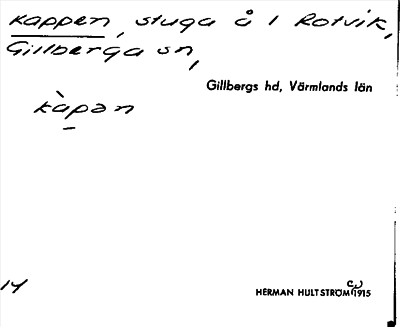 Kappen, stuga å 1 Rotvik,
Gillberga sn,
Gillbergs hd, Värmlands län
kàpən
14
HERMAN HULTSTRÖM 1915